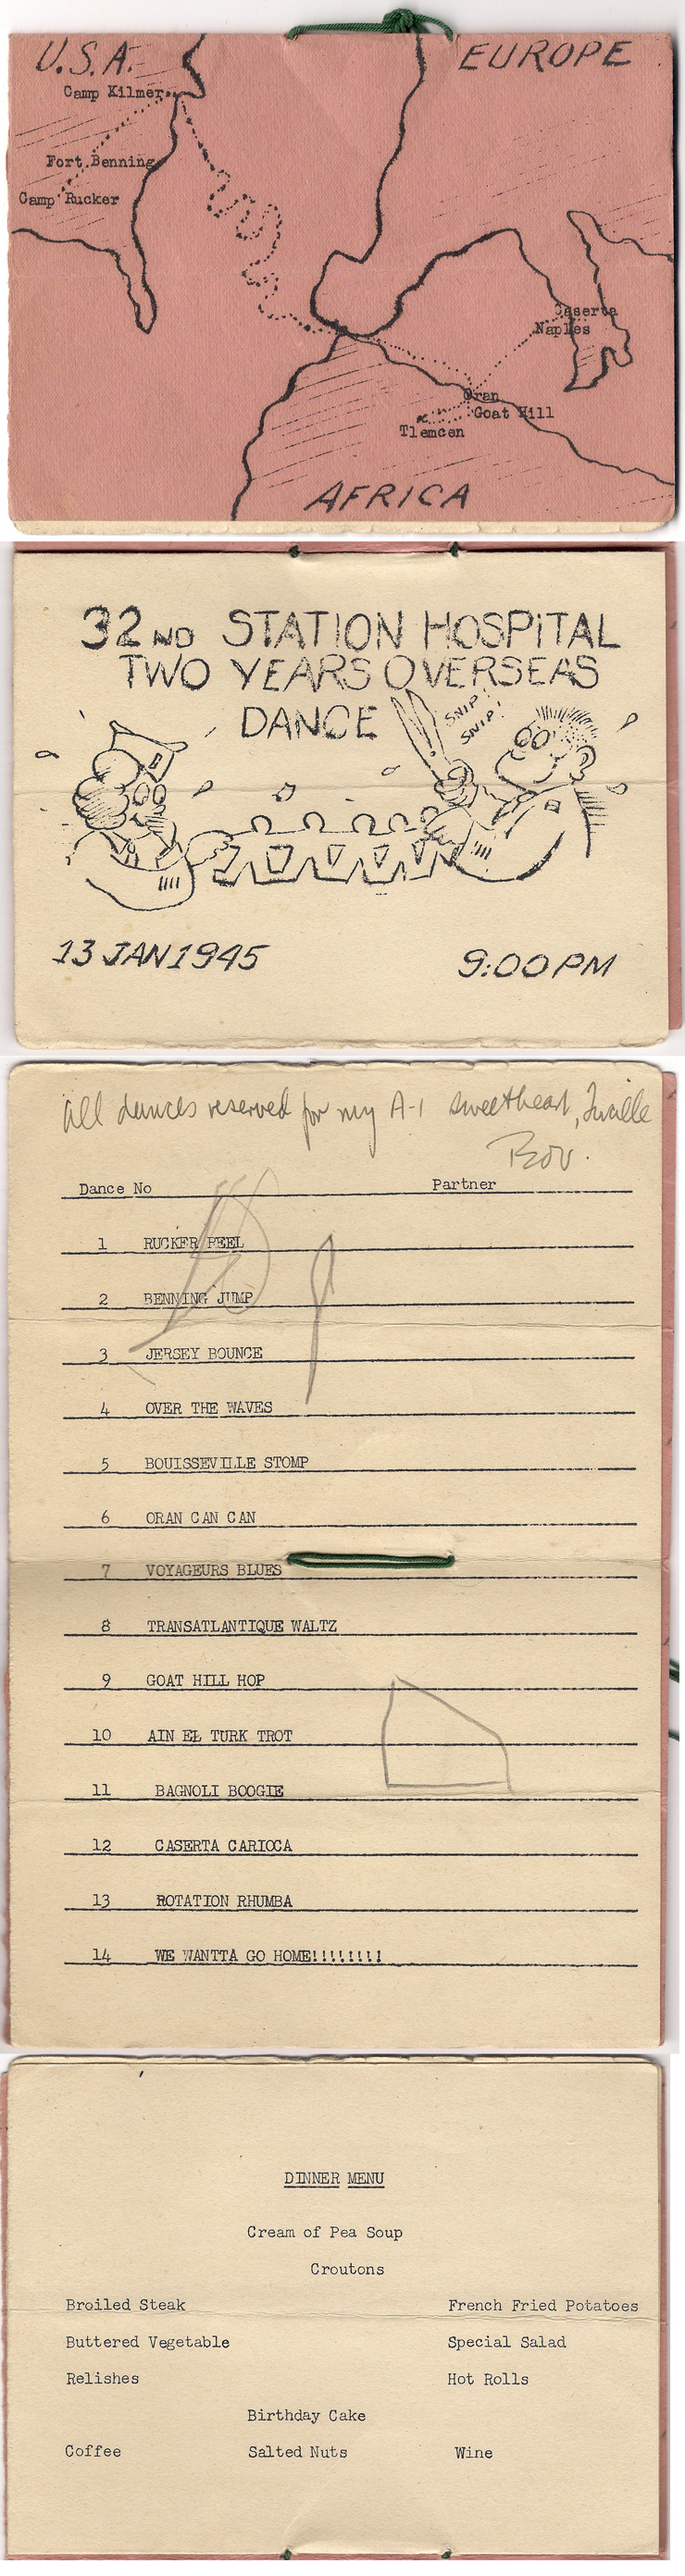 U.S.A.
EUROPE
Camp Kilmer
Fort Benning
Camp Rucker
Caserta
Naples
Oran
Goat Hill
Tlemcen
AFRICA
32ND STATION HOSPITAL
TWO YEARS OVERSEAS
DANCE
SNIP!
SNIP!
13 JAN 1945 9:00 PM
All dances reserved for my A-1 sweetheart,
Dance No Partner
1 RUCKER REEL
2 BENNING JUMP
3 JERSEY BOUNCE
4 OVER THE WAVES
5 BOUISSEVILLE STOMP
6 ORAN CAN CAN
7 VOYAGEURS BLUES
8 TRANSATLANTIQUE WALTZ
9 GOAT HILL HOP
10 AIN EL TURK TROT
11 BAGNOLI BOOGIE
12 CASERTA CARIOCA
13 ROTATION RHUMBA
14 WE WANTTA GO HOME!!!!!!!!
DINNER MENU
Cream of Pea Soup
Croutons
Broiled Steak French Fried Potatoes
Buttered Vegetable Special Salad
Relishes Hot Rolls
Birthday Cake
Coffee Salted Nuts Wine